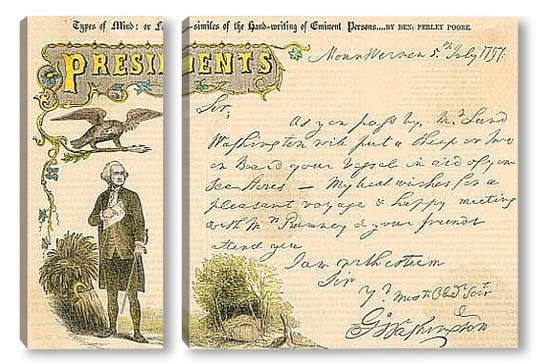 Types of Mind: or Fac-similes of the Hand-writing of Eminent Persons....BY BEN: PERLEY POORE.
PRESIDENTS
Mount Vernon 5th July 1797.
Sir,
As you pass by, Mr. Lund
Washington will put a Sheep or two
on Board your Vessel in aid of your
Sea Stores — My best wishes for a
pleasant voyage & happy meeting
with Mrs Rumney & your friends
attend you
I am with esteem
Sir
Yr. most Obedt Servt
Go Washington